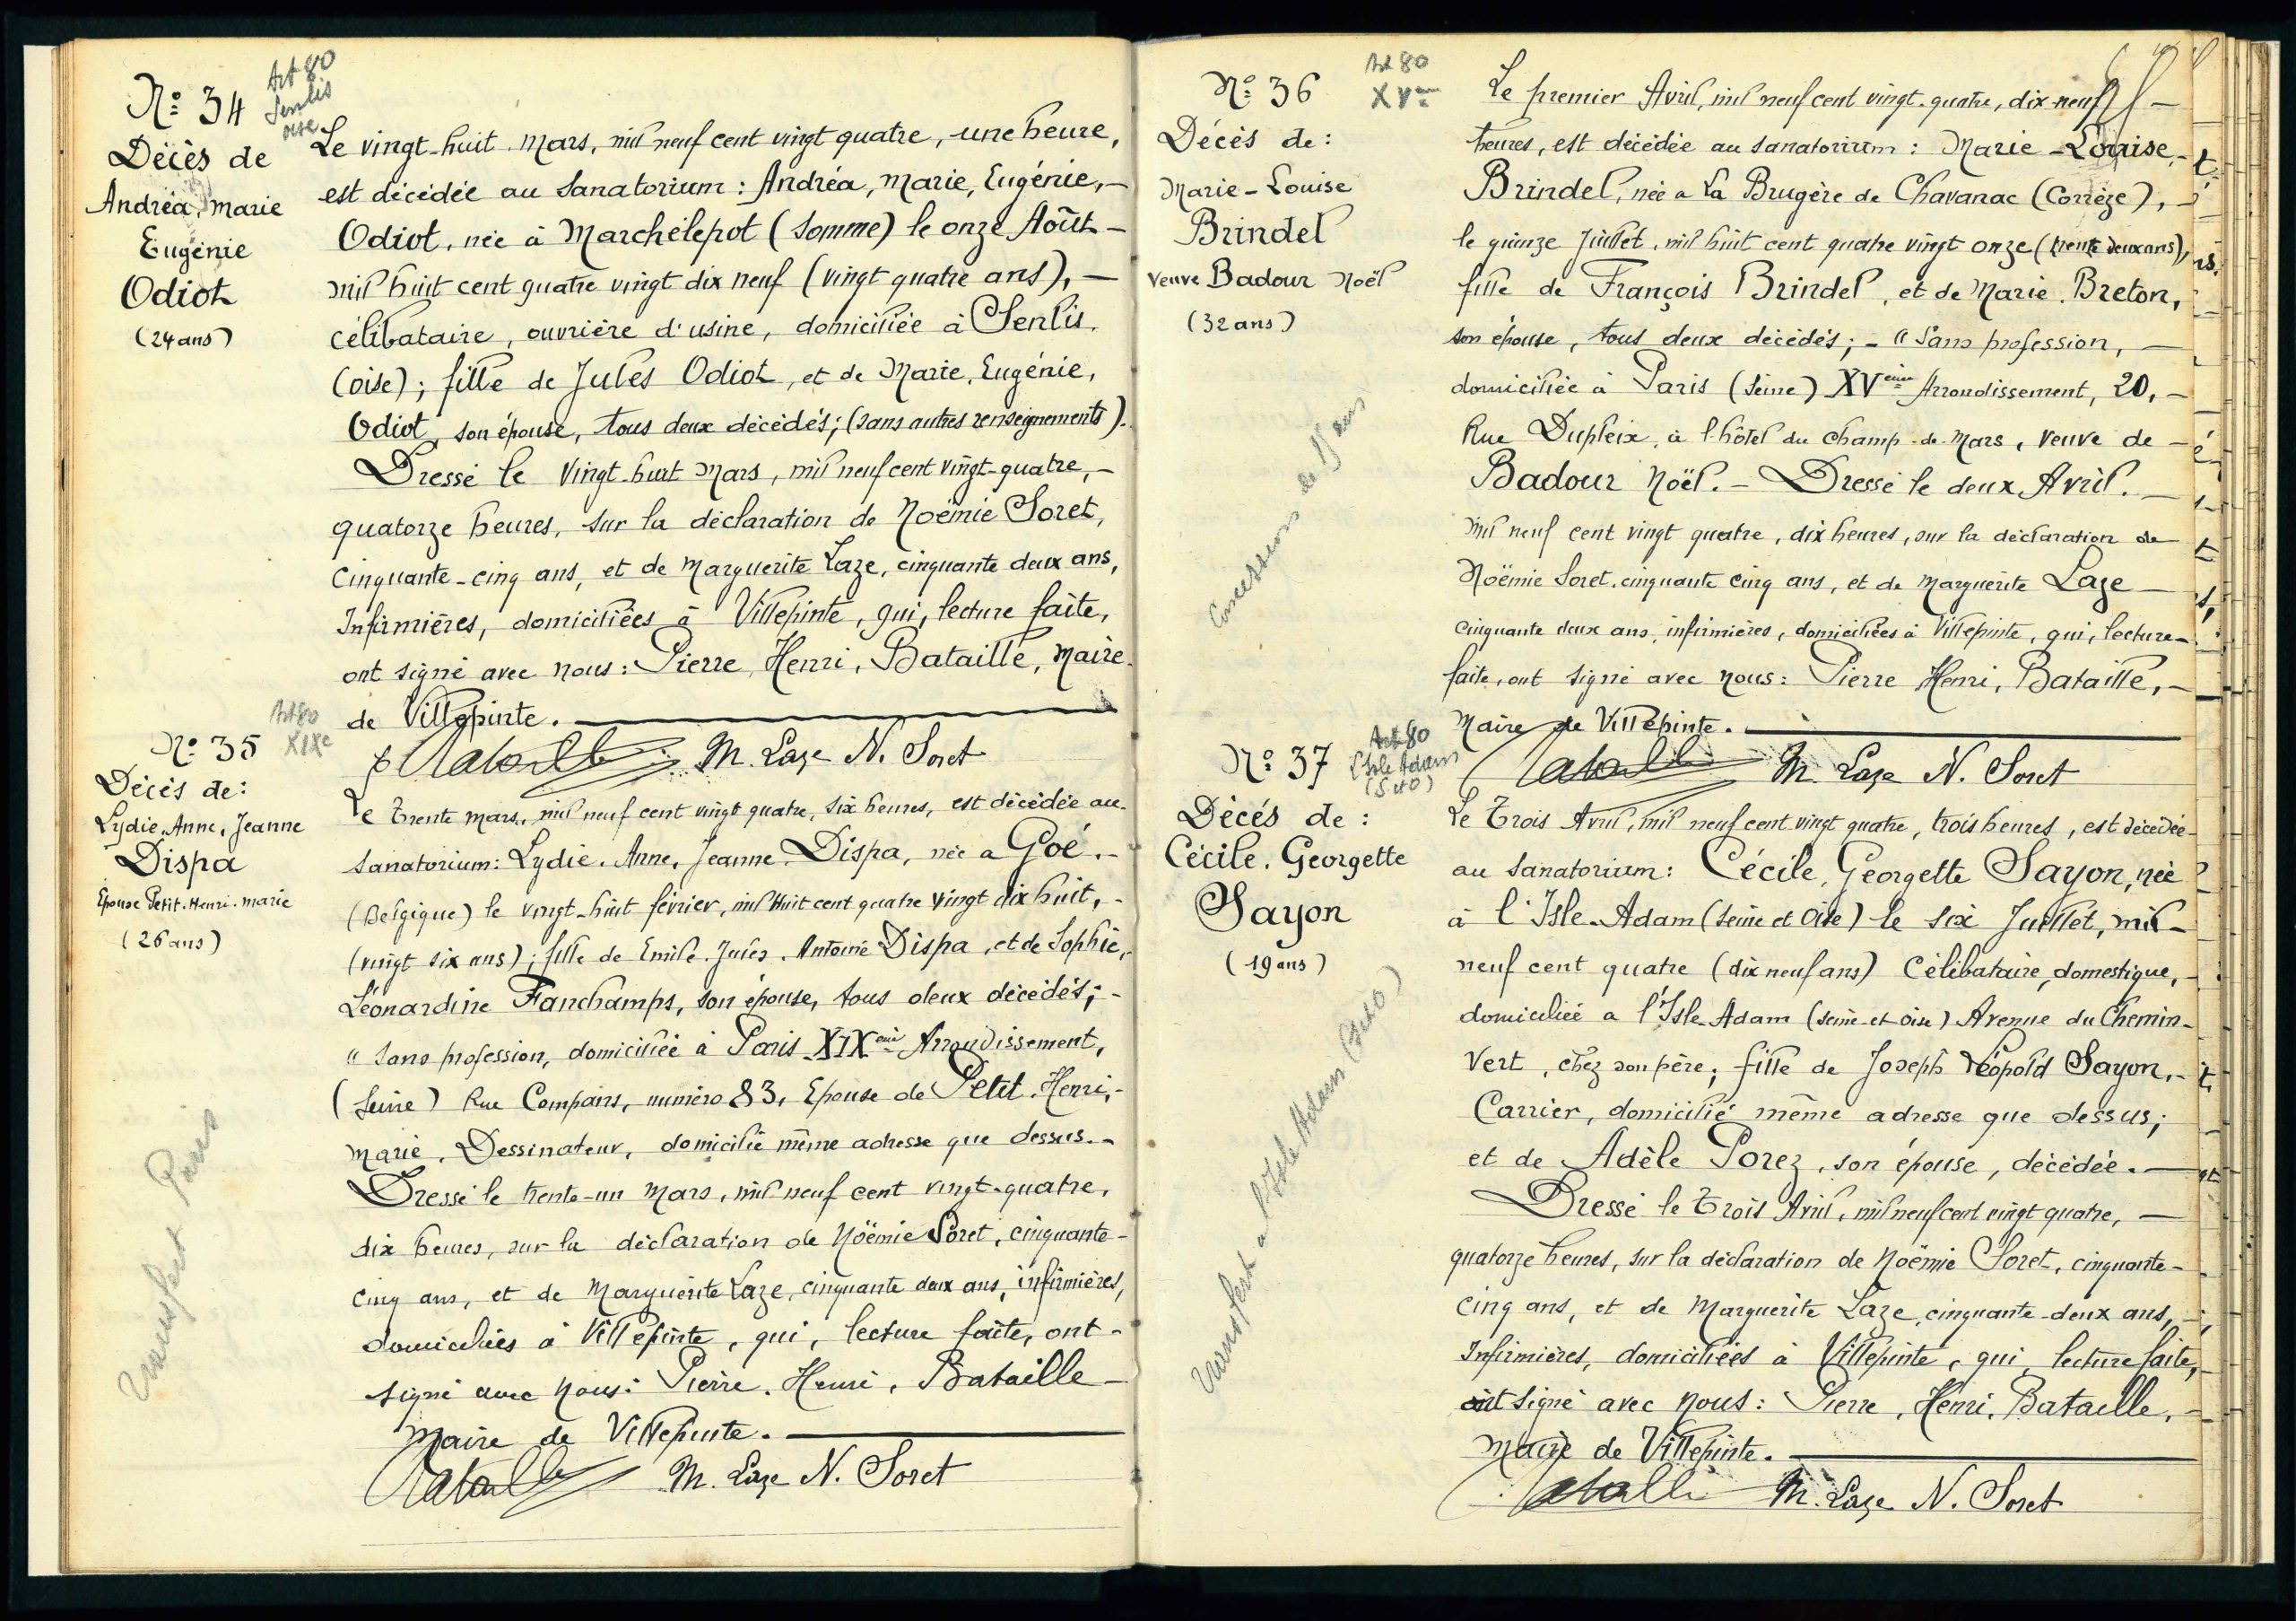 Art 80
Senlis
oise
N° 34
Décès de
Andréa, Marie
Eugénie
Odiot
(24 ans)
Le vingt-huit Mars, mil neuf cent vingt quatre, une heure,
est décédée au Sanatorium : Andréa, Marie, Eugénie, —
Odiot, née à Marchélepot (Somme) le onze Août —
mil huit cent quatre vingt dix neuf (vingt quatre ans), —
célibataire, ouvrière d'usine, domiciliée à Senlis,
(oise); fille de Jules Odiot, et de Marie, Eugénie,
Odiot, son épouse, tous deux décédés; (sans autres renseignements).
Dressé le vingt-huit Mars, mil neuf cent vingt-quatre, —
quatorze heures, sur la déclaration de Noëmie Soret,
Cinquante-cinq ans, et de Marguerite Laze, cinquante deux ans,
Infirmières, domiciliées à Villepinte, qui, lecture faite,
ont signé avec nous : Pierre, Henri, Bataille, Maire
de Villepinte. —
Bataille M. Laze N. Soret
Art 80
XIXe
N° 35
Décès de :
Lydie, Anne, Jeanne
Dispa
Epouse Petit. Henri. Marie
(26 ans)
Transfert Paris
Le trente mars, mil neuf cent vingt quatre, six heures, est décédée au
Sanatorium : Lydie, Anne, Jeanne, Dispa, née a Goé. —
(Belgique) le vingt-huit février, mil huit cent quatre vingt dix huit, -
(vingt six ans); fille de Emile. Jules. Antoine Dispa, et de Sophie,
Léonardine Fanchamps, son épouse, tous deux décédés; -
" Sans profession, domiciliée à Paris XIXème Arrondissement,
(Seine) Rue Compans, numéro 83, Epouse de Petit. Henri, -
Marie, Dessinateur, domicilié même adresse que dessus. -
Dressé le trente-un Mars, mil neuf cent vingt-quatre,
dix heures, sur la déclaration de Noëmie Soret, cinquante-
cinq ans, et de Marguerite Laze, cinquante deux ans, infirmières,
domiciliées à Villepinte, qui, lecture faite, ont -
signé avec nous : Pierre, Henri, Bataille —
Maire de Villepinte. —
Bataille M. Laze N. Soret
Art 80
XVme
N° 36
Décès de :
Marie-Louise
Brindel
veuve Badour Noël
(32 ans)
Concession de 15 ans
Le premier Avril, mil neuf cent vingt-quatre, dix-neuf —
heures, est décédée au sanatorium : Marie-Louise, -
Brindel, née a La Brugère de Chavanac (Corrèze), -
le quinze Juillet, mil huit cent quatre vingt onze (trente deux ans),
fille de François Brindel, et de Marie. Breton,
son épouse, tous deux décédés; - " Sans profession, —
domiciliée à Paris (Seine) XVème Arrondissement, 20, -
Rue Dupleix, à l'hôtel du Champ-de-Mars, veuve de -
Badour Noël. - Dressé le deux Avril. —
mil neuf cent vingt quatre, dix heures, sur la déclaration de
Noëmie Soret, cinquante cinq ans, et de Marguerite Laze —
cinquante deux ans, infirmières, domiciliées à Villepinte, qui, lecture -
faite, ont signé avec nous : Pierre Henri, Bataille, -
Maire de Villepinte. —
Bataille M. Laze N. Soret
Art 80
l'Isle Adam
(S et O)
N° 37
Décés de :
Cécile, Georgette
Sayon
(19 ans)
Transfert a l'Isle Adam (S et O)
Le trois Avril, mil neuf cent vingt quatre, trois heures, est décédée
au Sanatorium : Cécile, Georgette Sayon, née
à l'Isle-Adam (Seine et Oise) le six Juillet, mil -
neuf cent quatre (dix neuf ans) Célibataire, domestique, -
domiciliée a l'Isle-Adam (Seine-et-Oise) Avenue du Chemin-
Vert, chez son père; fille de Joseph Léopold Sayon, -
Carrier, domicilié même adresse que dessus;
et de Adèle Porez, son épouse, décédée. —
Dressé le trois Avril, mil neuf cent vingt quatre, —
quatorze heures, sur la déclaration de Noëmie Soret, cinquante-
cinq ans, et de Marguerite Laze, cinquante-deux ans, -
Infirmières, domiciliées à Villepinte, qui, lecture faite,
ont signé avec nous : Pierre, Henri, Bataille, -
Maire de Villepinte. —
Bataille M. Laze N. Soret